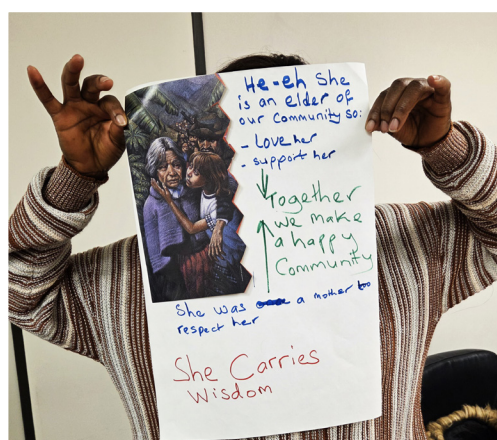 He-eh She
is an elder of
our community so:
- Love her
- support her
Together
we make
a happy
Community
She was a mother too
respect her
She Carries
Wisdom